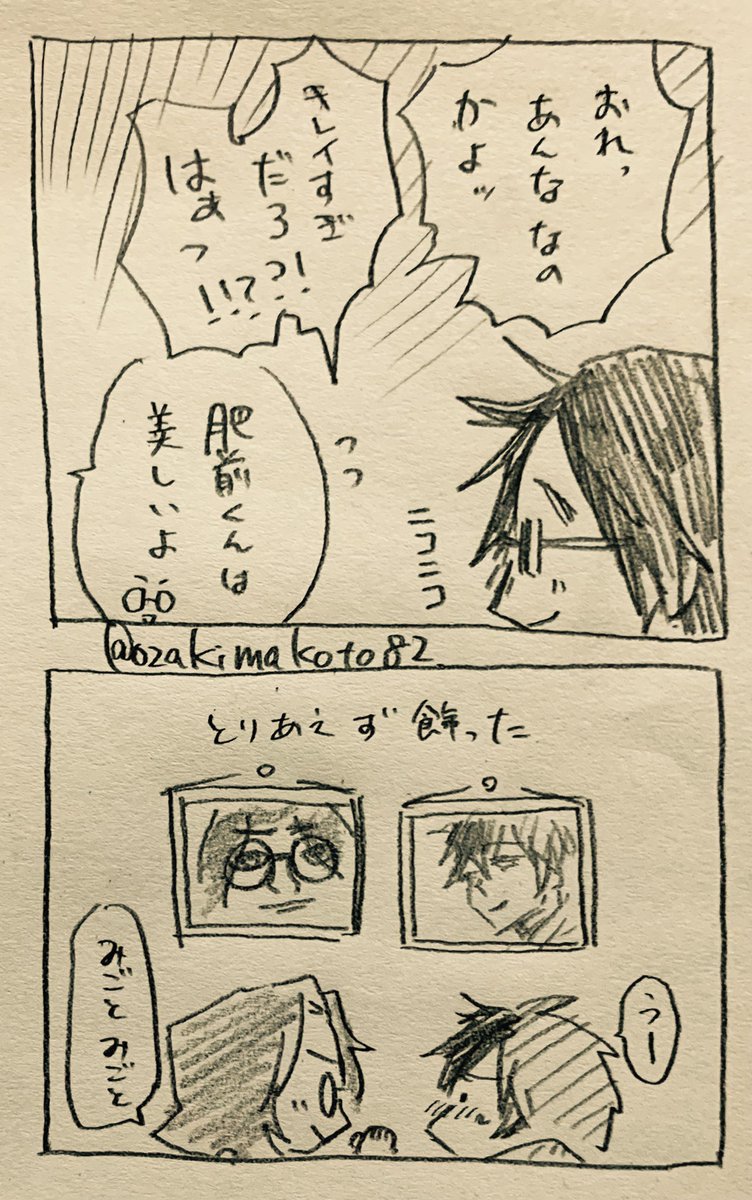 おれっ
あんななの
かよッ
キレイすぎ
だろ?!
はぁっ!!??
ニコニコ
肥前くんは
美しいよ
@ozakimakoto82
とりあえず飾った
うー
みごとみごと